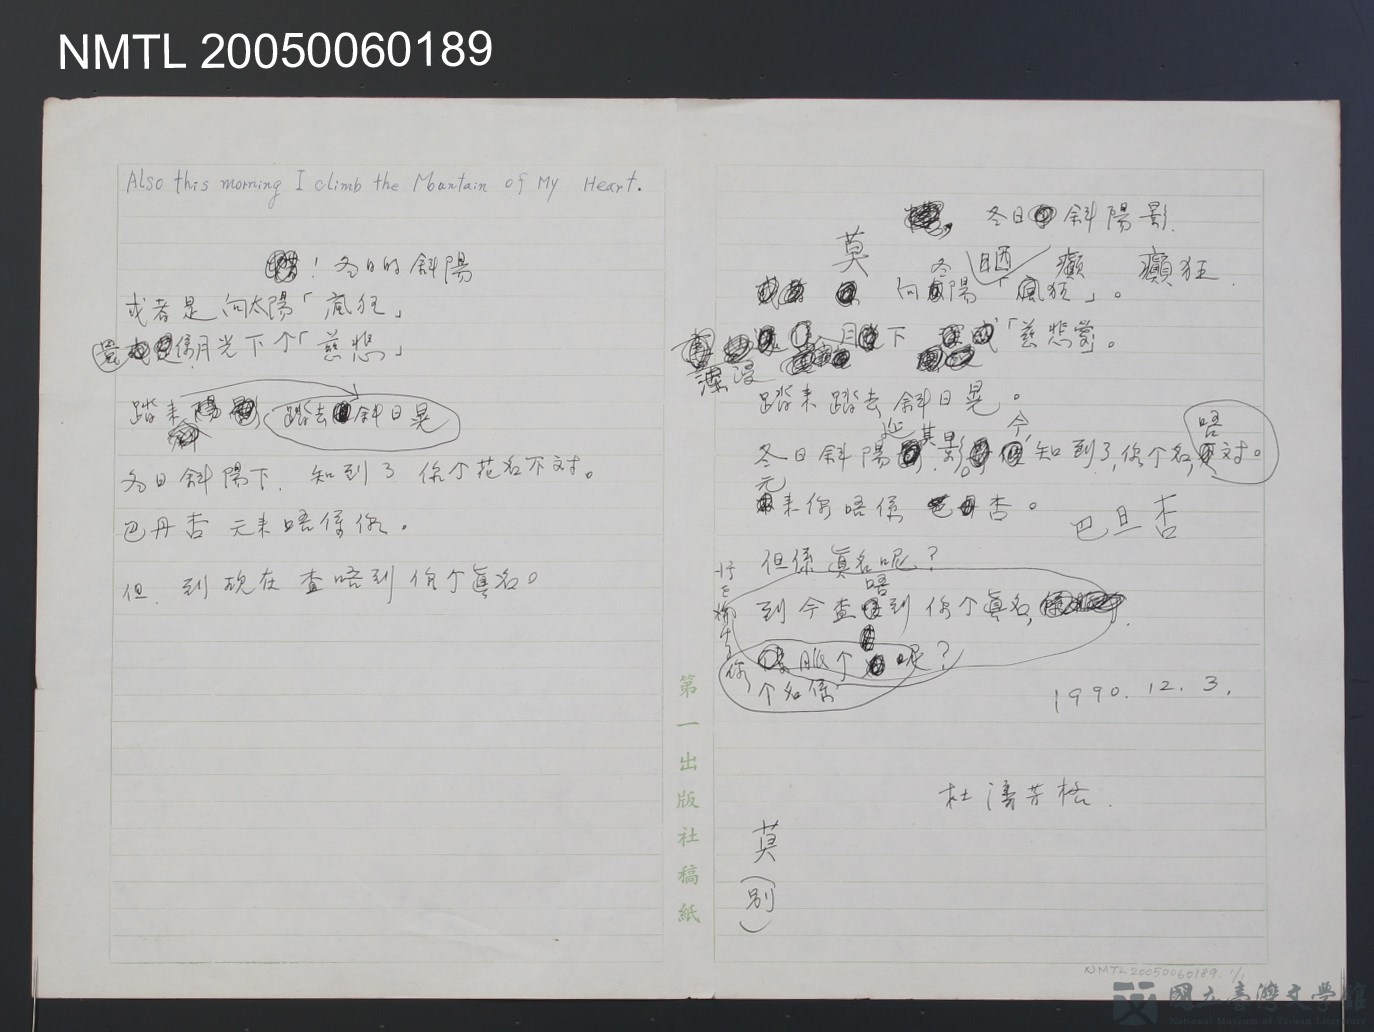 NMTL 20050060189
Also this morning I climb the Mountain of My Heart.
! 冬日的斜陽
或者是向太陽「瘋狂」
係月光下个「慈悲」
踏來 踏去斜日晃
冬日斜陽下. 知到了 你个花名不对。
巴丹杏 元來唔係你。
但. 到現在 查唔到 你个眞名。
冬日斜陽影.
莫
冬 晒 癲 癲狂.
向陽「瘋狂」。
月下 或「慈悲愛」。
深深
踏來踏去 斜日晃。
冬日斜陽 其影, 今 知到了, 你个名, 唔对。
元來你唔係 杏。
巴旦杏
但係眞名呢?
到今查唔到 你个眞名,
个 呢?
你个名係
1990. 12. 3.
杜潘芳格.
莫
(別)
第一出版社稿紙
NMTL20050060189. 1/1
國立臺灣文學館
National Museum of Taiwan Literature